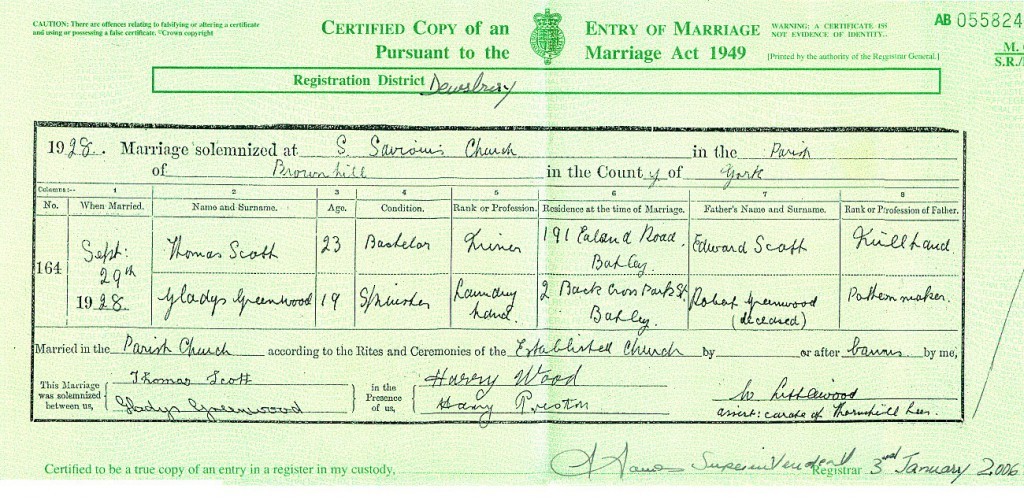 CAUTION: There are offences relating to falsifying or altering a certificate
and using or possessing a false certificate. ©Crown copyright
CERTIFIED COPY of an ENTRY OF MARRIAGE
Pursuant to the Marriage Act 1949
WARNING: A CERTIFICATE IS
NOT EVIDENCE OF IDENTITY.
[Printed by the authority of the Registrar General.]
AB 055824
M.
S.R./
Registration District Dewsbury
1928. Marriage solemnized at S. Saviours Church in the Parish
of Brownhill in the County of York
Columns:— 1 2 3 4 5 6 7 8
No. When Married. Name and Surname. Age. Condition. Rank or Profession. Residence at the time of Marriage. Father's Name and Surname. Rank or Profession of Father.
164 Sept: 29th 1928. Thomas Scott 23 Bachelor 191 Ealand Road. Batley. Edward Scott
Gladys Greenwood 19 Spinster Laundry hand. 2 Back Cross Park St. Batley. Robert Greenwood (deceased) Pattern maker.
Married in the Parish Church according to the Rites and Ceremonies of the Established Church by or after banns by me,
This Marriage was solemnized between us, Thomas Scott Gladys Greenwood in the Presence of us, Harry Wood Harry Preston W. Littlewood
assist: curate of Thornhill Lees.
Certified to be a true copy of an entry in a register in my custody, Superintendent Registrar 3rd January 2006